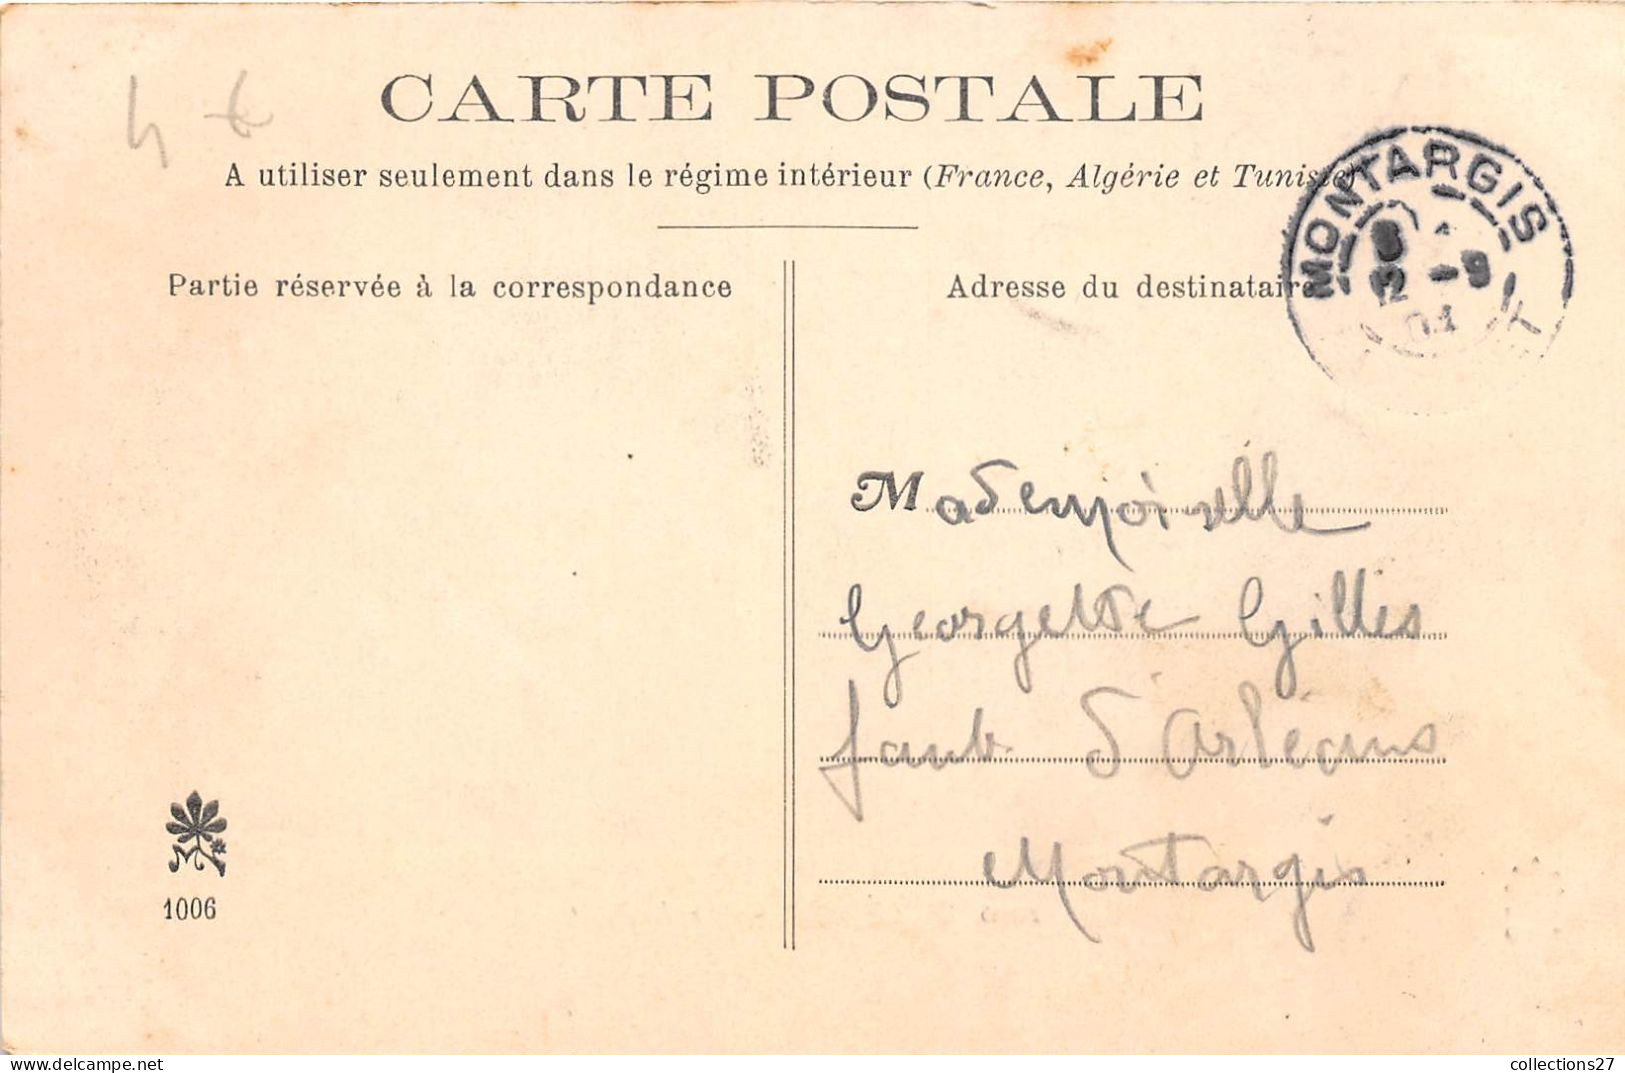 4 €
CARTE POSTALE
A utiliser seulement dans le régime intérieur (France, Algérie et Tunisie)
Partie réservée à la correspondance
Adresse du destinataire
MONTARGIS
Mademoiselle
Georgette Gilles
faub. d'Orléans
Montargis
M
1006
collections27